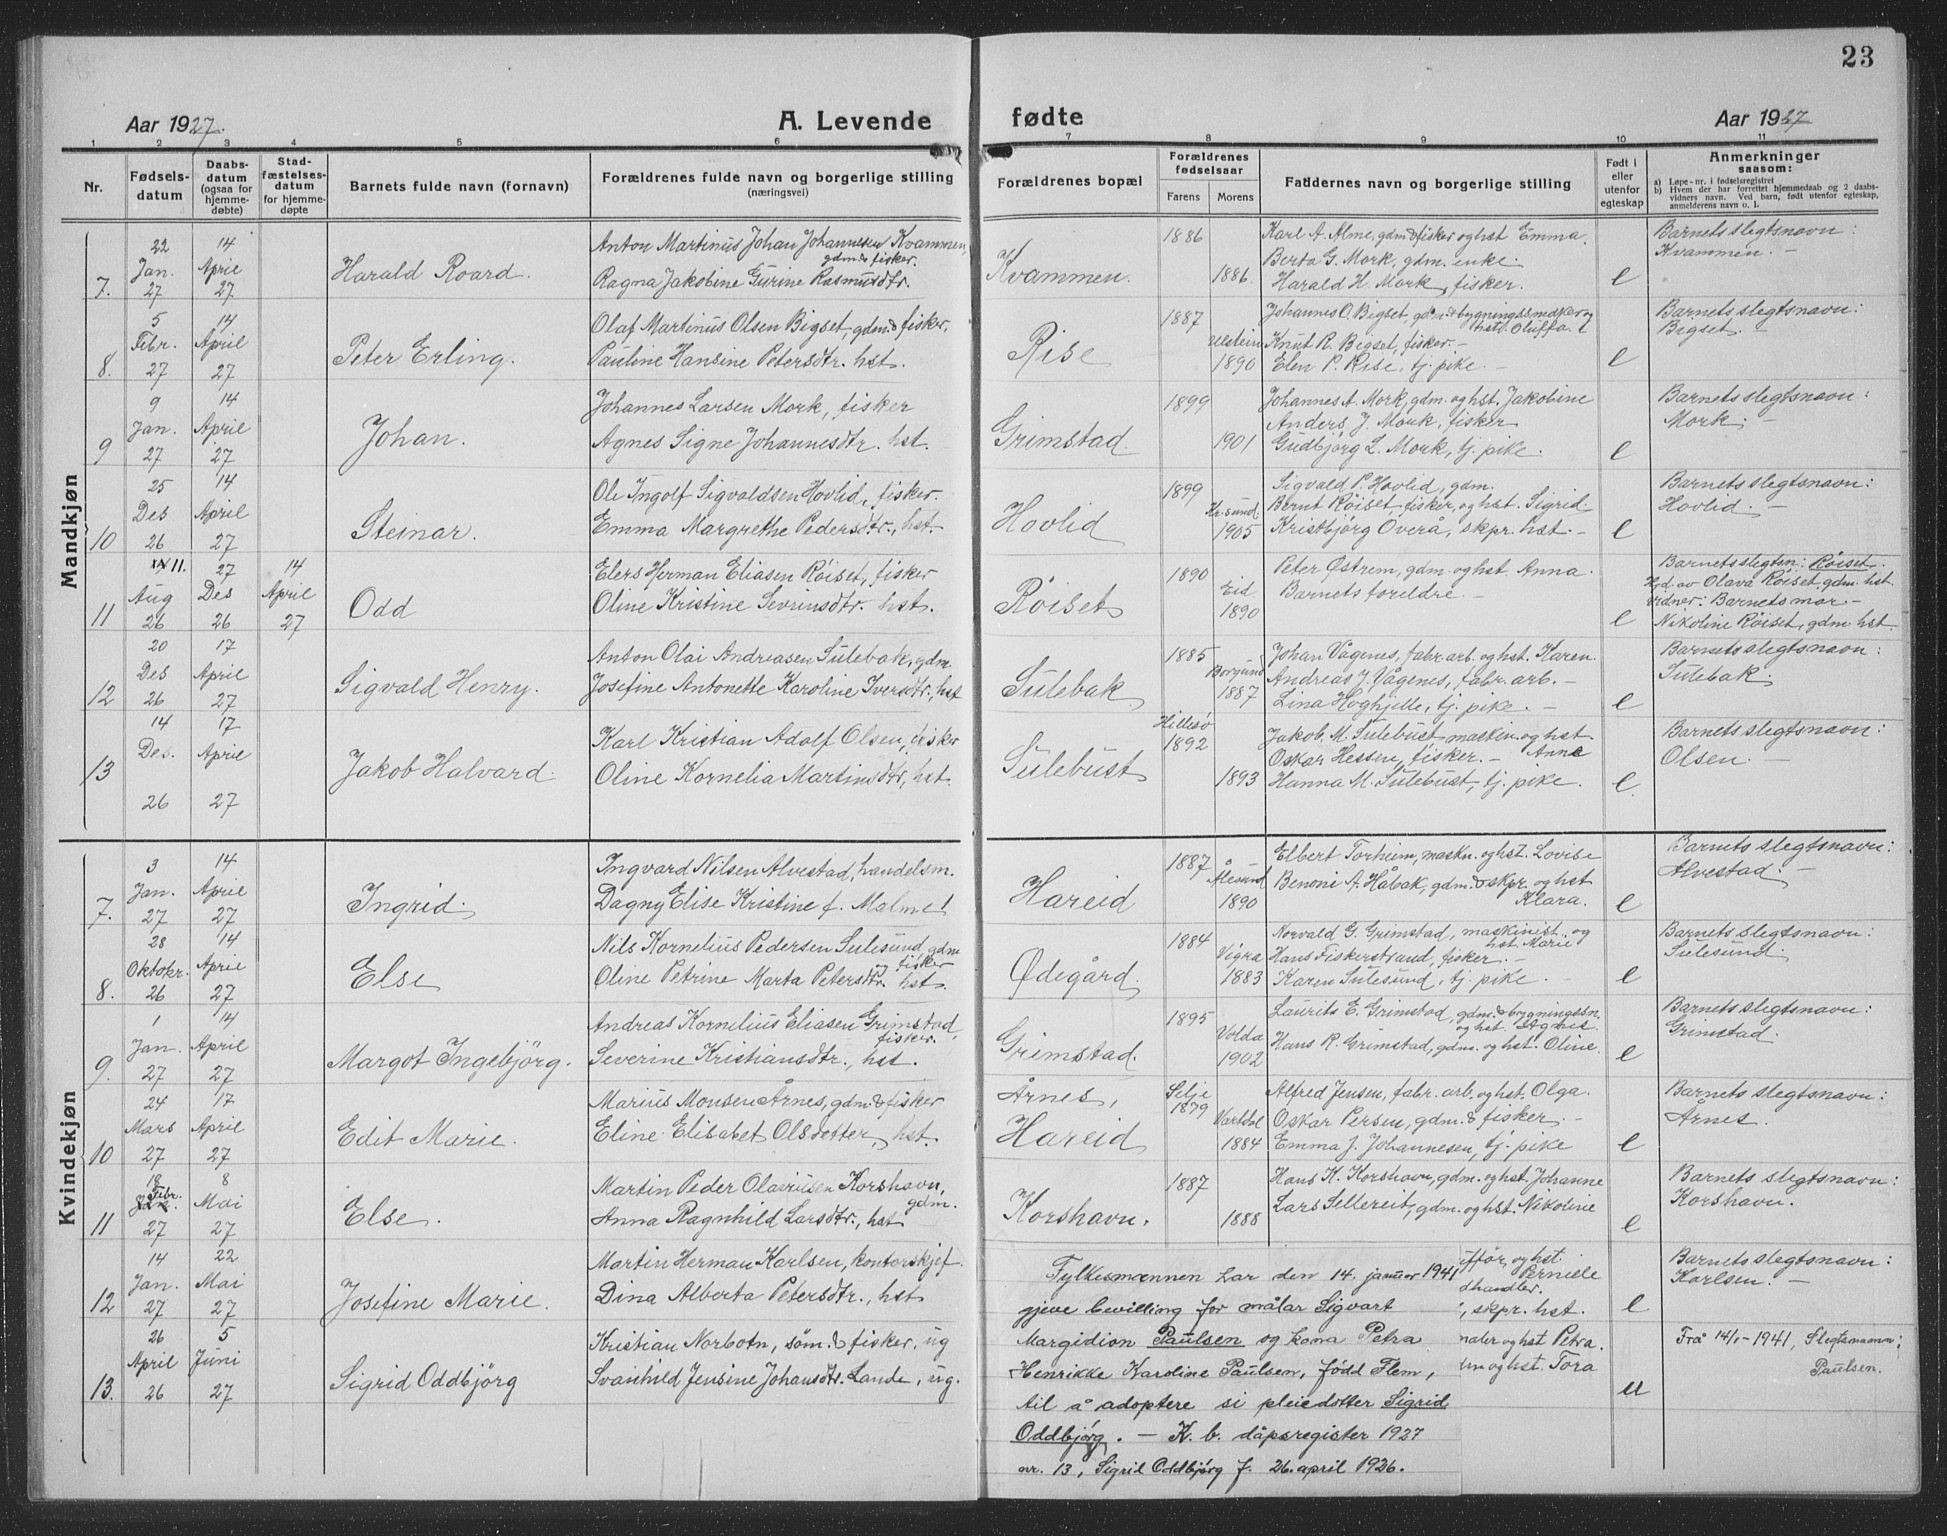 23
Aar 1927. A. Levende fødte Aar 1927
1 2 3 4 5 6 7 8 9 10 11
Nr. Fødsels-datum Daabs-datum (ogsaa for hjemme-døbte) Stad-fæstelses-datum for hjemme-døpte Barnets fulde navn (fornavn) Forældrenes fulde navn og borgerlige stilling (næringsvei) Forældrenes bopæl Forældrenes fødselsaar Farens Morens Faddernes navn og borgerlige stilling Født i eller utenfor egteskap Anmerkninger saasom:
a) Løpe-nr. i fødselsregistret
b) Hvem der har forrettet hjemmedaab og 2 daabs-vidners navn. Ved barn, født utenfor egteskap, anmelderens navn o. l.
Mandkjøn
7. 22 Jan. 27 14 April 27 Harald Roard.
Anton Martinus Johan Johannesen Kvammen, gdm. & fisker.
Ragna Jakobine Gurine Rasmusdtr.
Kvammen. 1886 1886.
Karl A. Alme, gdm. & fisker og hst Emma.
Berta G. Mork, gdm. enke.
Harald H. Mork, fisker.
e
Barnets slegtsnavn:
Kvammen. –
8. 5 Febr. 27 14 April 27 Peter Erling.
Olaf Martinus Olsen Bigset, gdm. & fisker.
Pauline Hansine Petersdtr. hst.
Rise 1887 Ulstein 1890
Johannes O. Bigset, gdm. & bygningssnedker og hst. Oluffa.
Knut R. Bigset, fisker. –
Elen P. Rise, tj. pike. –
e
Barnets slegtsnavn:
Bigset. –
9 9 Jan. 27 14 April 27 Johan.
Johannes Larsen Mork, fisker
Agnes Signe Johannesdtr. hst.
Grimstad. 1899 1901
Johannes A. Mork, gdm. og hst. Jakobine
Anders J. Mork, fisker
Gudbjørg L. Mork, tj. pike.
e
Barnets slegtsnavn:
Mork; –
10 25 Des 26 14 April 27 Steinar.
Ole Ingolf Sigvaldsen Hovlid, fisker.
Emma Margrethe Pedersdtr., hst.
Hovlid 1899 Kr.sund 1905
Sigvald P. Hovlid, gdm.
Bernt Røiset, fisker, og hst. Sigrid.
Kristbjørg Overå, skpr. hst –
e
Barnets slegtsnavn:
Hovlid. –
11 11. Aug 26 27 Des 26 14 April 27 Odd
Elers Herman Eliasen Røiset, fisker
Oline Kristine Sevrinsdtr. hst.
Røiset 1890 Eid 1890
Peter Østrem, gdm. og hst. Anna.
Barnets foreldre. –
e
Barnets slegtsn: Røiset.
Hjd. av Olava Røiset, gdm. hst.
vidner: Barnets mor –
Nikoline Røiset, gdm hst.
12 20 Des 26 17 April 27 Sigvald Henry.
Anton Olai Andreasen Sulebak, gdm.
Josefine Antonette Karoline Iversdtr., hst
Sulebak 1885 Borgund 1887
Johan Vågenes, fabr. arb. og hst. Karen.
Andreas J. Vågenes, fabr. arb. –
Lina Høghjelle, tj. pike. –
e
Barnets slegtsnavn:
Sulebak.
13 14 Des. 26 17 April 27 Jakob Halvard.
Karl Kristian Adolf Olsen, fisker
Oline Kornelia Martinsdtr, hst.
Sulebust Hillesø 1892 1893
Jakob. M. Sulebust, maskin. og hst Anna
Oskar Hessen, fisker. –
Hanna M. Sulebust, tj. pike.
e.
Barnets slegtsnavn:
Olsen. –
Kvindekjøn
7. 3 Jan. 27 14 April 27 Ingrid.
Ingvard Nilsen Alvestad, handelsm.
Dagny Elise Kristine f. Malme!
Hareid 1887 Ålesund 1890
Elbert Torheim, maskn. og hst. Lovise
Benoni A. Håbak, gdm. & skpr. og hst Klara.
e
Barnets slegtsnavn:
Alvestad: –
8. 28 Oktobr. 26 14 April 27 Else
Nils Kornelius Pedersen Sulesund, gdm og fisker
Oline Petrine Marta Petersdtr. hst.
Ødegård. 1884 Vigra 1883
Norvald G. Grimstad, maskinist. og hst. Marie
Hans Fiskerstrand, fisker. –
Karen Sulesund, tj. pike. –
e
Barnets slegtsnavn:
Sulesund.
9. 1 Jan. 27 14 April 27 Margot Ingebjørg.
Andreas Kornelius Eliasen Grimstad, fisker.
Severine Kristiansdtr., hst.
Grimstad. 1895 Volda 1902
Laurits E. Grimstad, gdm. & bygningssn. og hst. Agnes.
Hans R. Grimstad, gdm. og hst. Oline.
e
Barnets slegtsnavn:
Grimstad.
10 24 Mars 27 17 April 27 Edit Marie.
Marius Monsen Årnes, gdm. & fisker
Eline Elisabet Olsdotter, hst.
Årnes, Hareid Selje 1879 Vartdal 1884
Alfred Jensen, fabr. arb. og hst. Olga.
Oskar Persen, gdm. & fisker. –
Emma J. Johannesen, tj. pike
e
Barnets slegtsnavn:
Årnes.
11 18 Febr. 27 8 Mai 27 Else.
Martin Peder Olavusen Korshavn, gdm.
Anna Ragnhild Larsdtr., hst
Korshavn. 1887 1888
Hans K. Korshavn, gdm. og hst. Johanne
Lars Sellereit, gdm. og hst. Nikoline
e
Barnets slegtsnavn:
Korshavn.
12 14 Jan. 27 22 Mai 27 Josefine Marie.
Martin Herman Karlsen, kontorskjef.
Dina Alberta Petersdtr., hst
og hst. Perniele
, skpr. hst.
e
Barnets slegtsnavn:
Karlsen. –
13. 26 April 26 5 Juni 27 Sigrid Oddbjörg
Kristian Norbotn, søm. & fisker, ug
Svanhild Jensine Johansdtr. Lande, ug.
og hst Petra.
og hst. Tora
u
Frå 14/1-1941, Slegtsnamn:
Paulsen.
Fylkesmannen har den 14. januar 1941
gjeve bevilling for målar Sigvart
Margidion Paulsen og kona Petra
Henrikke Karoline Paulsen, född Flem,
til å adoptere si pleiedotter Sigrid
Oddbjörg. – K. b. dåpsregister 1927
nr. 13, Sigrid Oddbjörg f. 26. april 1926.